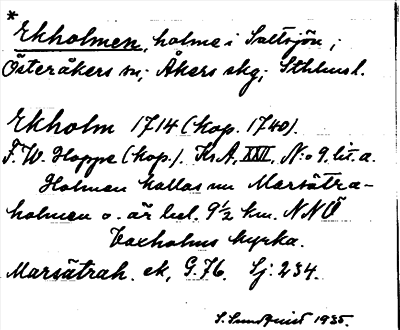 *
Ekholmen, holme i Saltsjön;
Österåkers sn; Åkers skg; Sthlmsl.
Ekholm 1714 (kop. 1740).
F. W. Hoppe (kop.). Kr. A, XXII, N:o 9, lit. a.
Holmen kallas nu Marsätra-
holmen o. är bel. 9½ km. NNÖ
Vaxholms kyrka.
Marsätrah. ek, G. 76. Sj: 234.
S. Sundquist 1935.